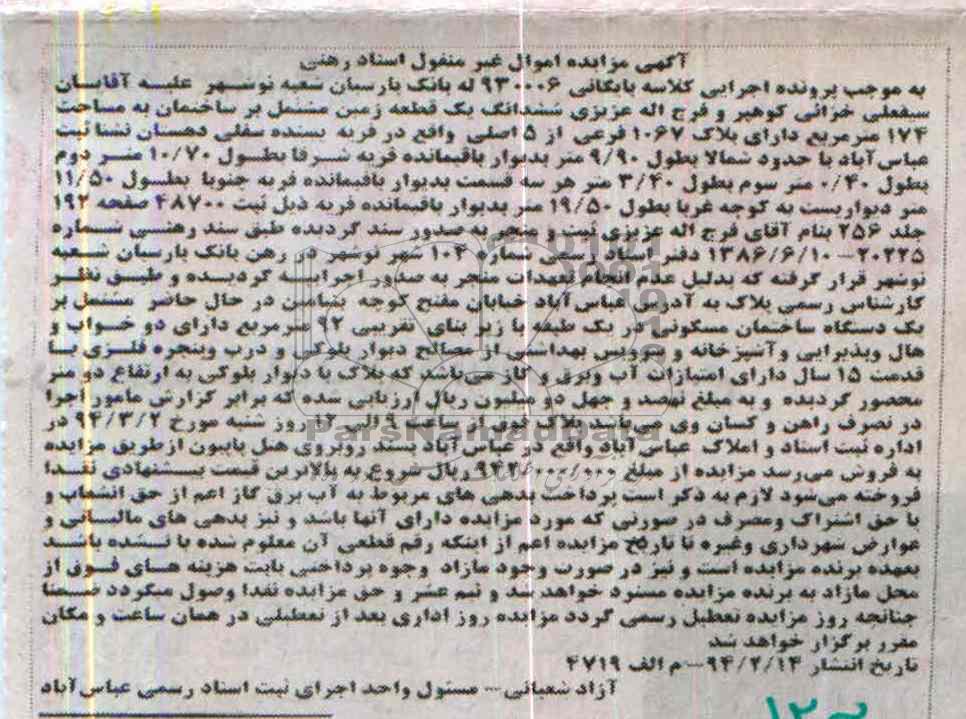 آگهی مزایده اموال غیر منقول اسناد رهنی
به موجب پرونده اجرایی کلاسه بایگانی ۹۳۰۰۰۶ له بانک پارسیان شعبه نوشهر علیه آقایان
سیفعلی خزائی کوهپر و فرج اله عزیزی ششدانگ یک قطعه زمین مشتمل بر ساختمان به مساحت
۱۷۴ مترمربع دارای پلاک ۱۰۶۷ فرعی از ۵ اصلی واقع در قریه بسنده سفلی دهستان نشتا ثبت
عباس آباد با حدود شمالا بطول ۹/۹۰ متر بدیوار باقیمانده قریه شرقا بطول ۱۰/۷۰ متر دوم
بطول ۰/۴۰ متر سوم بطول ۳/۴۰ متر هر سه قسمت بدیوار باقیمانده قریه جنوبا بطول ۱۱/۵۰
متر دیواریست به کوچه غربا بطول ۱۹/۵۰ متر بدیوار باقیمانده قریه ذیل ثبت ۴۸۷۰۰ صفحه ۱۹۲
جلد ۲۵۶ بنام آقای فرج اله عزیزی ثبت و منجر به صدور سند گردیده طبق سند رهنی شماره
۲۰۲۲۵-۱۳۸۶/۶/۱۰ دفتر اسناد رسمی شماره ۱۰۲ شهر نوشهر در رهن بانک پارسیان شعبه
نوشهر قرار گرفته که بدلیل عدم انجام تعهدات منجر به صدور اجرائیه گردیده و طبق نظر
کارشناس رسمی پلاک به آدرس عباس آباد خیابان مفتح کوچه بنیامین در حال حاضر مشتمل بر
یک دستگاه ساختمان مسکونی در یک طبقه با زیر بنای تقریبی ۹۲ مترمربع دارای دو خواب و
هال وپذیرایی وآشپزخانه و سرویس بهداشتی از مصالح دیوار بلوکی و درب وپنجره فلزی با
قدمت ۱۵ سال دارای امتیازات آب وبرق و گاز می‌باشد که پلاک با دیوار بلوکی به ارتفاع دو متر
محصور گردیده و به مبلغ نهصد و چهل دو میلیون ریال ارزیابی شده که برابر گزارش مامور اجرا
در تصرف راهن و کسان وی می‌باشد پلاک فوق از ساعت ۹ الی ۱۲ روز شنبه مورخ ۹۴/۳/۲ در
اداره ثبت اسناد و املاک عباس آباد واقع در عباس آباد پسند روبروی هتل پاپیون ازطریق مزایده
به فروش می‌رسد مزایده از مبلغ ۹۴۲۰۰۰۰۰۰ ریال شروع به بالاترین قیمت پیشنهادی نقدا
فروخته می‌شود لازم به ذکر است پرداخت بدهی های مربوط به آب برق گاز اعم از حق انشعاب و
یا حق اشتراک ومصرف در صورتی که مورد مزایده دارای آنها باشد و نیز بدهی های مالیاتی و
عوارض شهرداری وغیره تا تاریخ مزایده اعم از اینکه رقم قطعی آن معلوم شده یا نشده باشد
بعهده برنده مزایده است و نیز در صورت وجود مازاد وجوه پرداختی بابت هزینه های فوق از
محل مازاد به برنده مزایده مسترد خواهد شد و نیم عشر و حق مزایده نقدا وصول میگردد ضمنا
چنانچه روز مزایده تعطیل رسمی گردد مزایده روز اداری بعد از تعطیلی در همان ساعت و مکان
مقرر برگزار خواهد شد
تاریخ انتشار ۹۴/۲/۱۴-م الف ۴۷۱۹
آزاد شعبانی- مسئول واحد اجرای ثبت اسناد رسمی عباس آباد
ParsNamadData